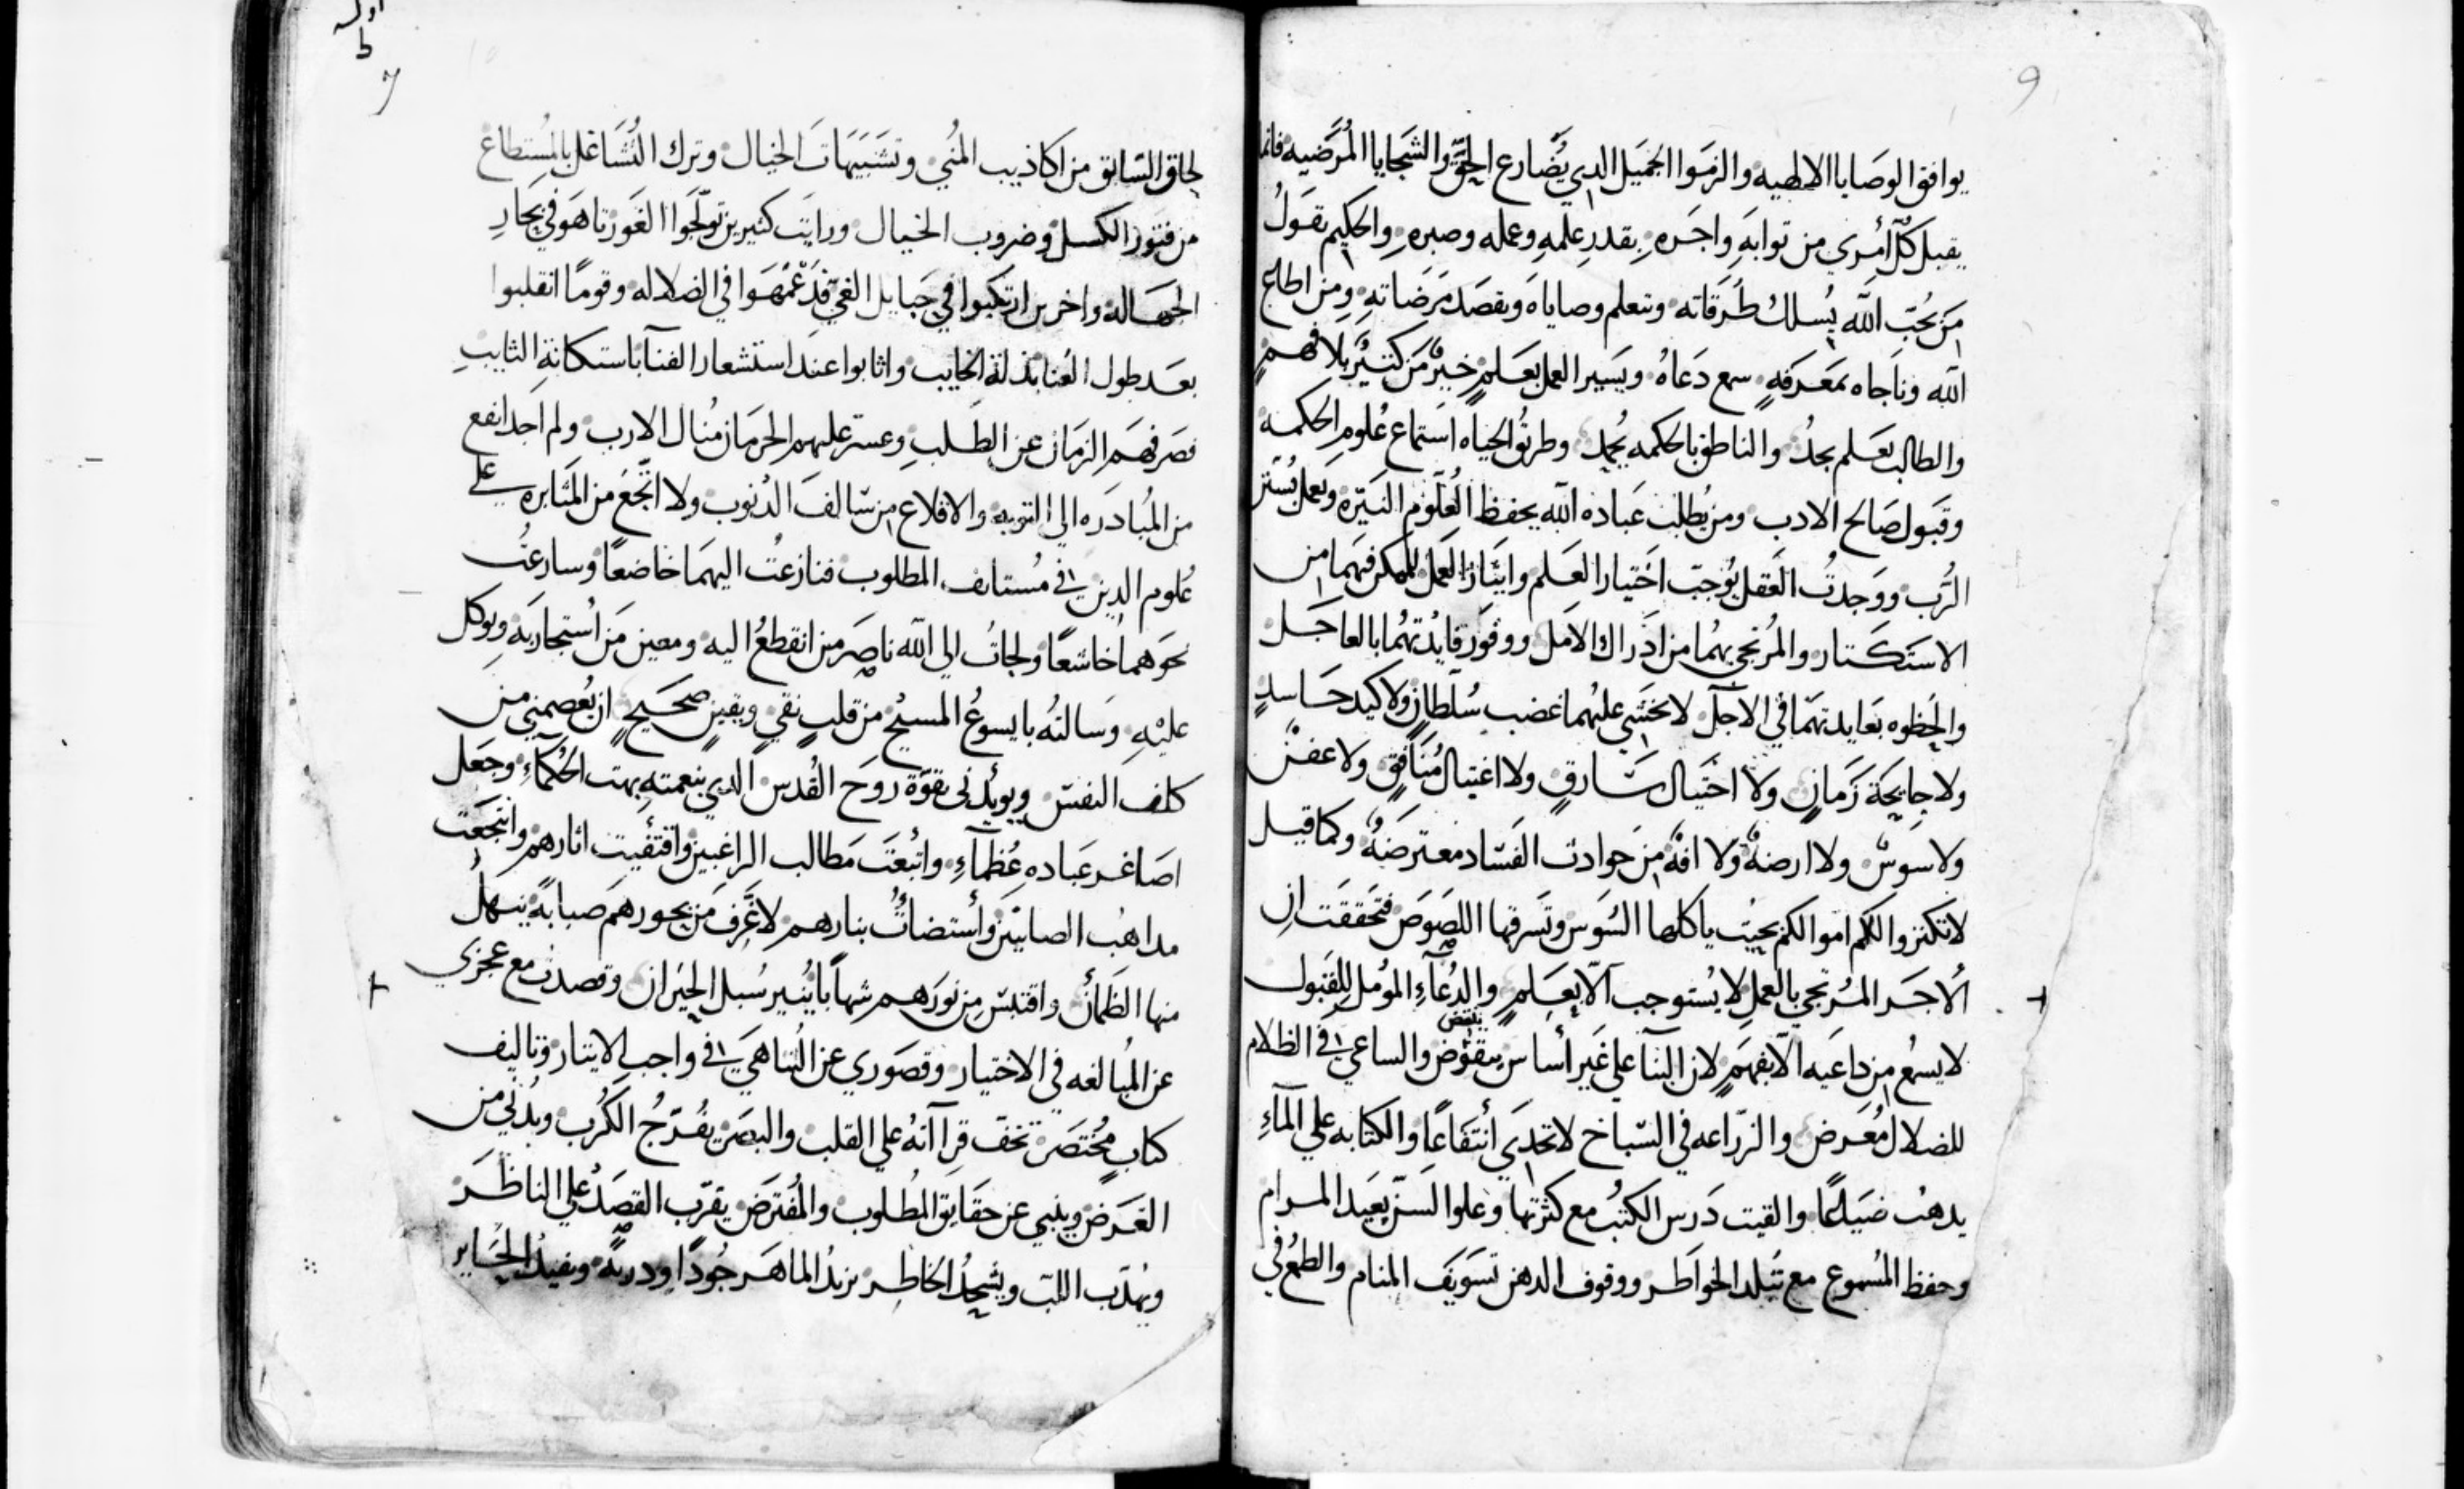 يوافق الوصايا الالهيه والزموا الجميل الدي يضارع الحق والشجايا المرضيه فانما
يقبل كل أمري من توابه واجره بقدر علمه وعمله وصبره والحكيم يقول
من يحب الله يسلك طرقاته وتعلم وصاياه ويقصد مرضاته ومن اطاع
الله وناجاه بمعرفه سمع دعاه ويسير العمل بعلم خير من كتير بلا فهم
والطالب بعلم يجد والناطق بالحكمه يحمد وطريق الحياه استماع علوم الحكمه
وقبول صالح الادب ومن يطلب عباده الله يحفظ العلوم النيره ويعمل بسنن
الرب ووجدت العقل يوجب اختيار العلم وايثار العمل للمكن فيهما من
الاستكتار والمرتجى بهما من ادراك الامل ووفور فايدتهما بالعاجل
والحظوه بعايدتهما في الاجل لا يخشي عليهما غضب سلطان ولا كيد حاسد
ولا جايحة زمان ولا احتيال سارق ولا اغتيال منافق ولا عفن
ولا سوس ولا ارضة ولا افة من حوادت الفساد معترضة وكما قيل
لا تكنزوا لكم اموالكم بحيث ياكلها السوس وتسرقها اللصوص فتحققت ان
الاجر المرتجي بالعمل لا يستوجب الا بعلم والدعاء المومل للقبول
لا يسمع من داعيه الا بفهم لان البنا علي غير أساس يتقوض والساعي في الظلام
ينتقض
للضلال معرض والزراعه في السباخ لا تجدي أنتفاعا والكتابه علي الماء
يدهب ضياعا والقيت درس الكتب مع كثرتها وعلوا السن بعيد المرام
وحفظ المسموع مع تبلد الخواطر ووقوف الدهن تسويف المنام والطمع في
9

اوله
ط
7
لحاق السابق من اكاذيب المني وتشبيهات الخيال وترك التشاغل بالمستطاع
من فتور الكسل وضروب الخيال ورايت كتيرين تولجوا الغور تاهو في بحار
الجهاله واخرين ارتكبوا في حبايل الغي قد عمهوا في الضلاله وقوما انقلبوا
بعد طول العنا بذلة الخايب واثابوا عند استشعار الفنا باستكانة التايب
فصرفهم الزمان عن الطلب وعسر عليهم الحرمان منال الارب ولم اجد انفع
من المبادره الي التوبه والاقلاع من سالف الدنوب ولا انجع من المثابره علي
علوم الدين في مستانف المطلوب فنازعت اليهما خاضعا وسارعت
نحوهما خاشعا ولجات الي الله ناصر من انقطع اليه ومعين من استجار به وتوكل
عليه وسالته بايسوع المسيح من قلب نقي ويقين صحيح ان يعصمني من
كلف النفس ويويدني بقوة روح القدس الدي بنعمته بهت الحكماء وجعل
اصاغر عباده عظماء واتبعت مطالب الراغبين واقتفيت اثارهم وانتجعت
مداهب الصابين وأستضات بنارهم لاغرف من بحورهم صبابة ينهل
منها الظمأن واقتبس من نورهم شهابا ينير سبل الحيران وقصدت مع عجزي
عن المبالغه في الاختيار وقصوري عن التناهي في واجب الايتار وتاليف
كتاب مختصر تخف قراته علي القلب والبصر يفرج الكرب ويدني من
الغرض وينبي عن حقايق المطلوب والمفترض يقرب القصد علي الناظر
ويهذب اللب ويشحذ الخاطر يزيد الماهر جودا ودربة ويفيد الحاير